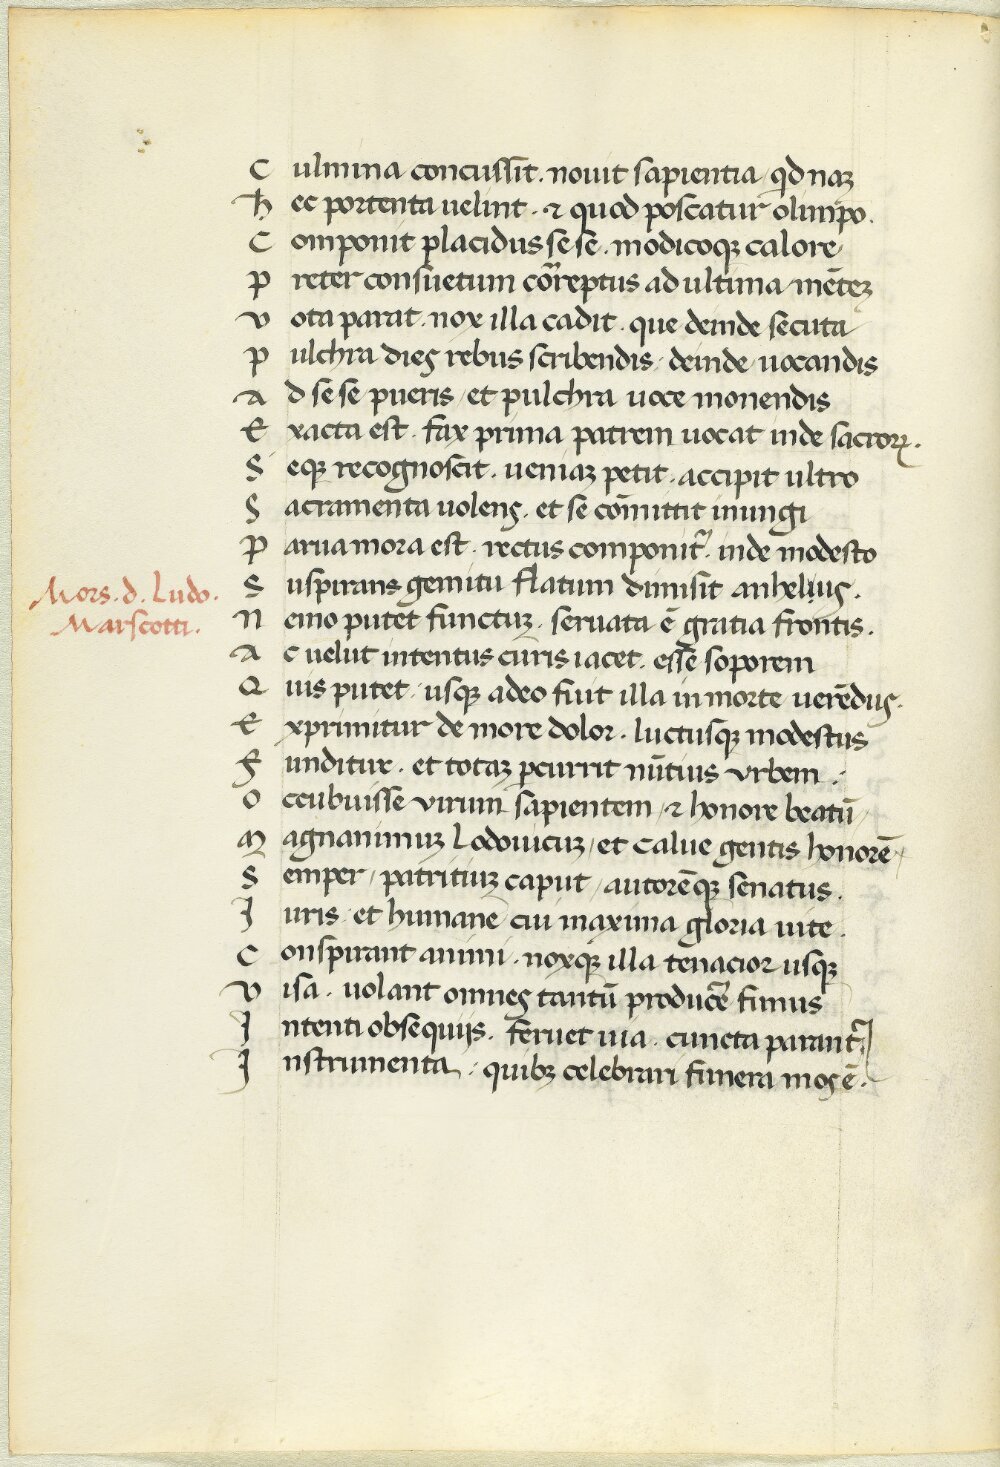 C ulmina concussīt . nouit sapientia / qd naꝫ
H ec portenta uelint . ⁊ quod poscatur olimpo .
C omponit placidus se se . modicoqꝫ calore
P reter consuetum cōrreptus ad ultima mēteꝫ
V ota parat . nox illa cadit . que deinde secuta
P ulchra dies rebus scribendis . deinde uocandis
A d se se pueris / et pulchra uoce monendis
E xacta est . fax prima patrem uocat inde sacroꝝ .
S eqꝫ recognoscit . ueniaꝫ petit . accipit ultro
S acramenta uolens . et se cōmittit inungi
P arua mora est . rectus componit᷑ . inde modesto
Mors . d . Ludo .
Marscotti .
S uspirans gemitu flatum dimisit anhelius .
N emo putet functuꝫ . seruata ē gratia frontis .
A c uelut intentus curis iacet . esse soporem
Q uis putet . usqꝫ adeo fuit illa in morte uerēdus .
E xprimitur de more dolor . luctusqꝫ modestus
F unditur . et totaꝫ ꝑcurrit nūtius vrbem .
O ccubuisse virum sapientem / ⁊ honore beatū /
M agnanimuꝫ Lodouicuꝫ / et Calue gentis honorē
S emper / patritiuꝫ caput / autorēqꝫ senatus .
I uris et humane cui maxima gloria uite .
C onspirant animi . noxqꝫ illa tenacior usqꝫ
V isa . uolant omnes tantū producēe funus
I ntenti obsequijs . feruet uia . cuncta parant᷑
I nstrumenta . quibꝫ celebrari funera mos ē .